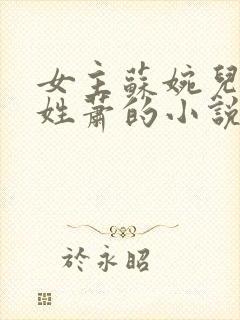 女主蘇婉兒
姓蕭的小說
於永昭